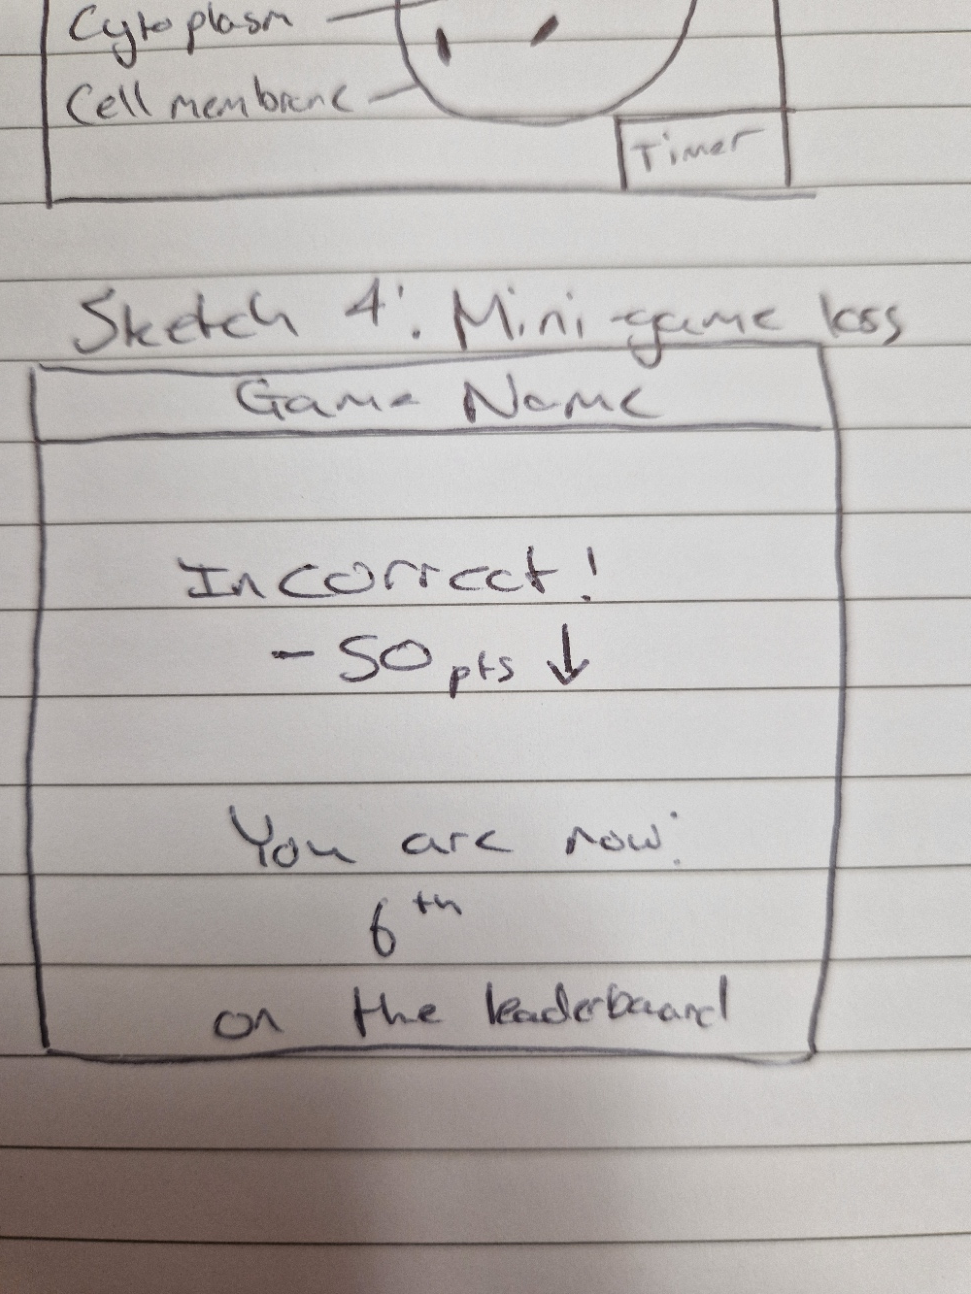 Cytoplasm
Cell membrane
Timer
Sketch 4: Mini-game loss
Game Name
Incorrect!
- 50 pts ↓
You are now:
6th
on the leaderboard